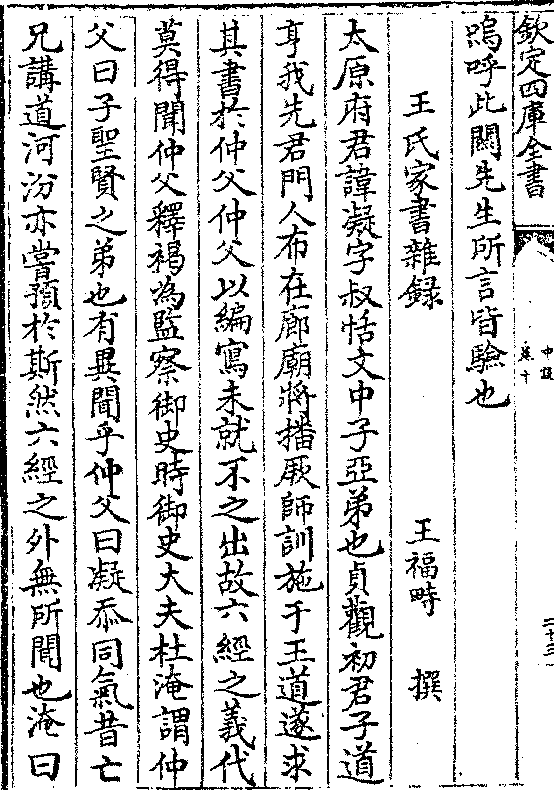 欽定四庫全書
中說
卷十
二十三
嗚呼此關先生所言皆驗也
王氏家書雜録 王福畤 撰
太原府君諱凝字叔恬文中子亞弟也貞觀初君子道
亨我先君門人布在廊廟將播厥師訓施于王道遂求
其書於仲父仲父以編寫未就不之出故六經之義代
莫得聞仲父釋褐為監察御史時御史大夫杜淹謂仲
父曰子聖賢之弟也有異聞乎仲父曰凝忝同氣昔亡
兄講道河汾亦嘗預於斯然六經之外無所聞也淹曰